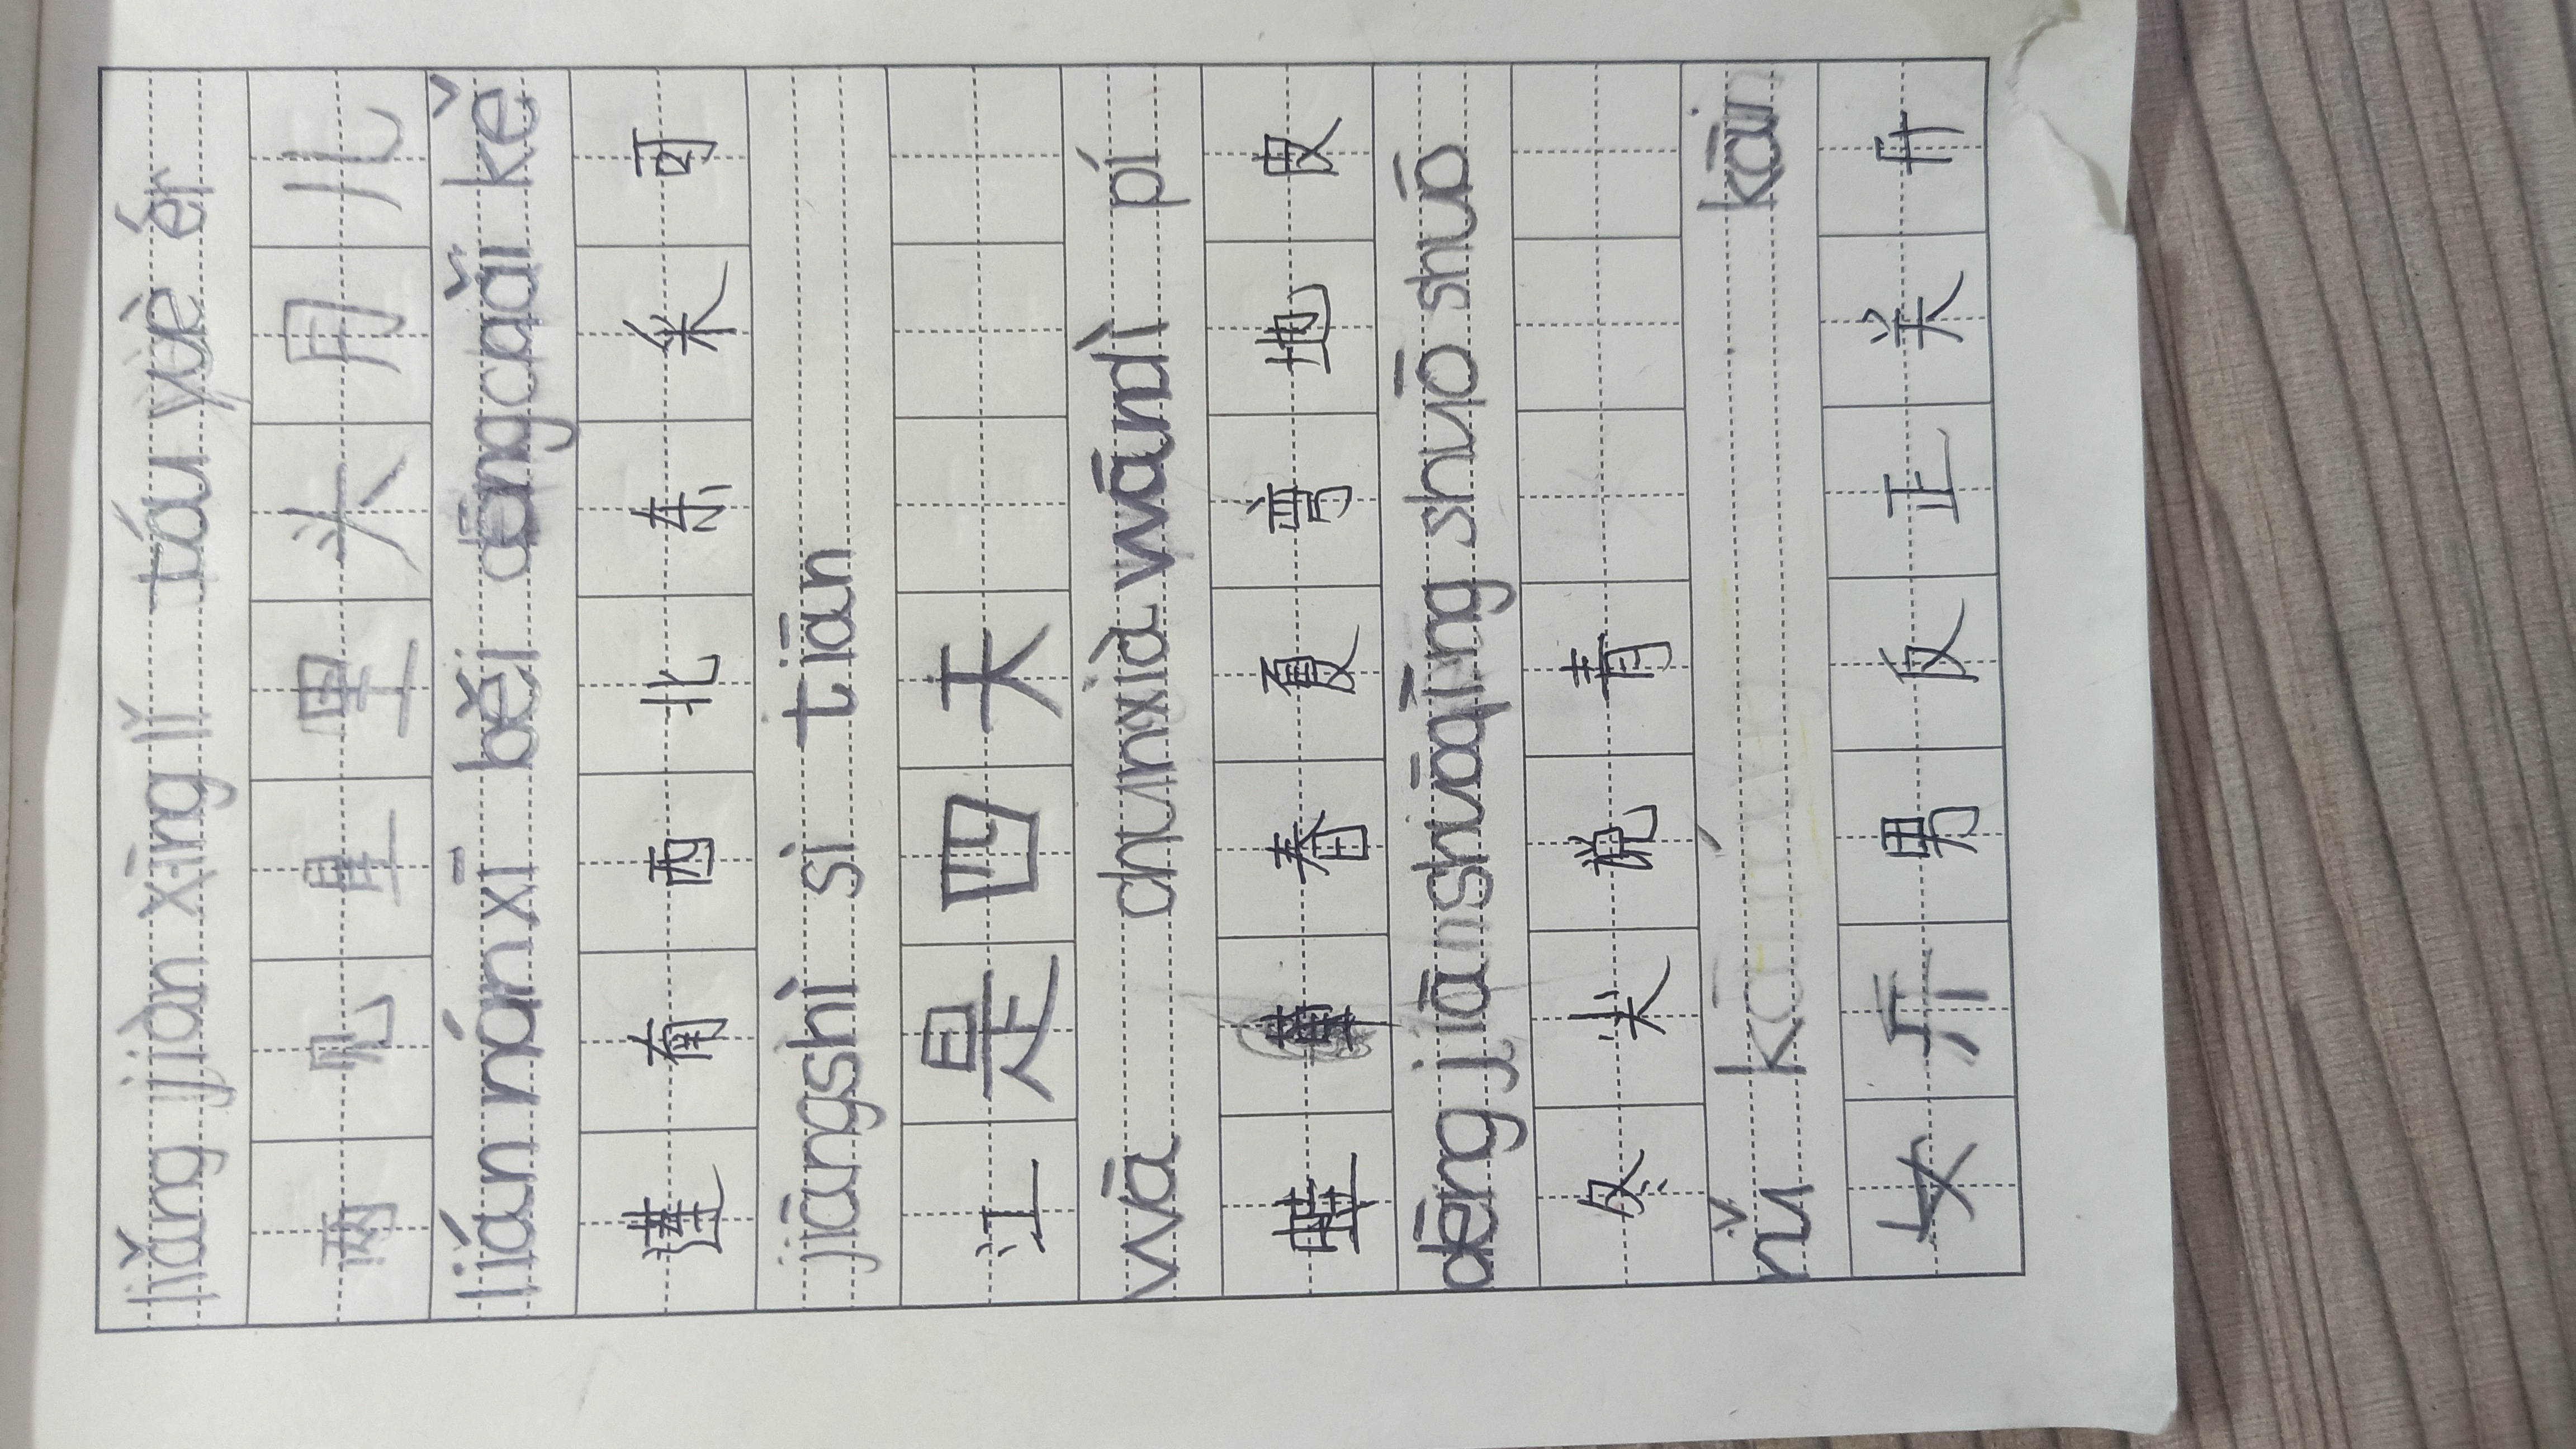 liǎng jiàn xīng lǐ táu yuè ér
两 见 星 里 头 月 儿
lián nán xī běi dōng cǎi kě
莲 南 西 北 东 采 可
jiāng shì sì tiān
江 是 四 天
wā chūn xià wān dì pí
蛙 春 夏 弯 地 皮
dōng jiān shuō qīng shuō shuō
冬 尖 说 青
nǚ kāi kāi
女 开 男 反 正 关 开